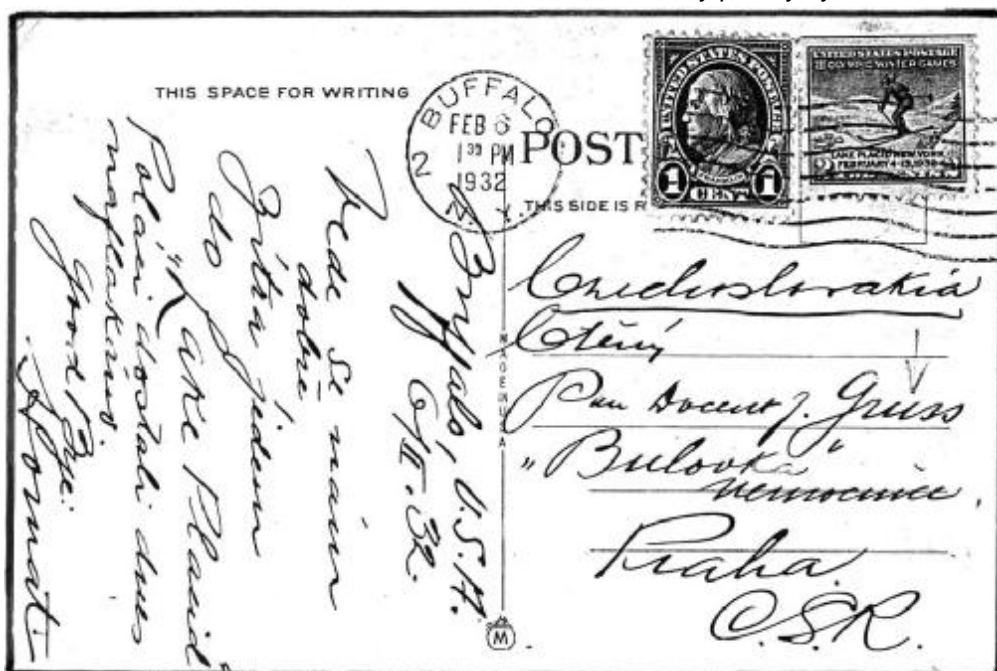 THIS SPACE FOR WRITING
BUFFALO
FEB 6
1 30 PM
1932
2 N.Y.
POST
THIS SIDE IS
UNITED STATES POSTAGE
FRANKLIN
1 CENT 1
UNITED STATES POSTAGE
III OLYMPIC WINTER GAMES
LAKE PLACID NEW YORK
FEBRUARY 4-13, 1932
2
Buffalo, U.S.A.
6/II. 32.
se mám
dobře
Zítra jedem
do
"Lake Placid"
Poláci dostali dnes
naflákáno.
Good Bye.
MADE IN USA
M
Czechoslovakia
Ctěný
Pan Docent J. Gruss
"Bulovka"
nemocnice
Praha
Č.S.R.